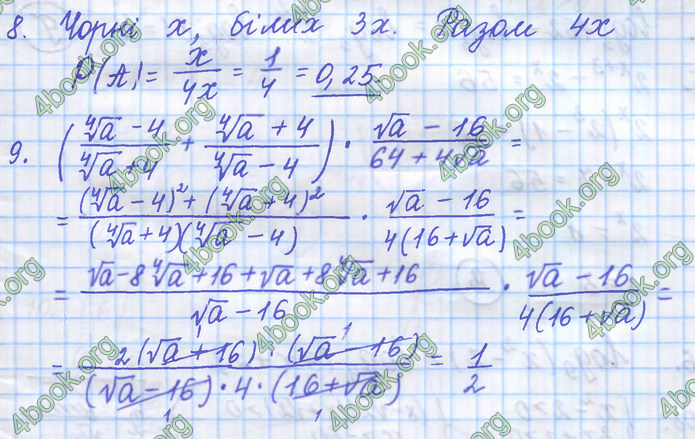 8. Чорні x, білих 3x. Разом 4x
P(A) = x/4x = 1/4 = 0,25.
9. ((∜a - 4)/(∜a + 4) + (∜a + 4)/(∜a - 4)) · (√a - 16)/(64 + 4√a) =
= ((∜a - 4)² + (∜a + 4)²)/((∜a + 4)(∜a - 4)) · (√a - 16)/(4(16 + √a)) =
= (√a - 8∜a + 16 + √a + 8∜a + 16)/(√a - 16) · (√a - 16)/(4(16 + √a)) =
= (2(√a + 16) · (√a - 16))/((√a - 16) · 4 · (16 + √a)) = 1/2
4book.org